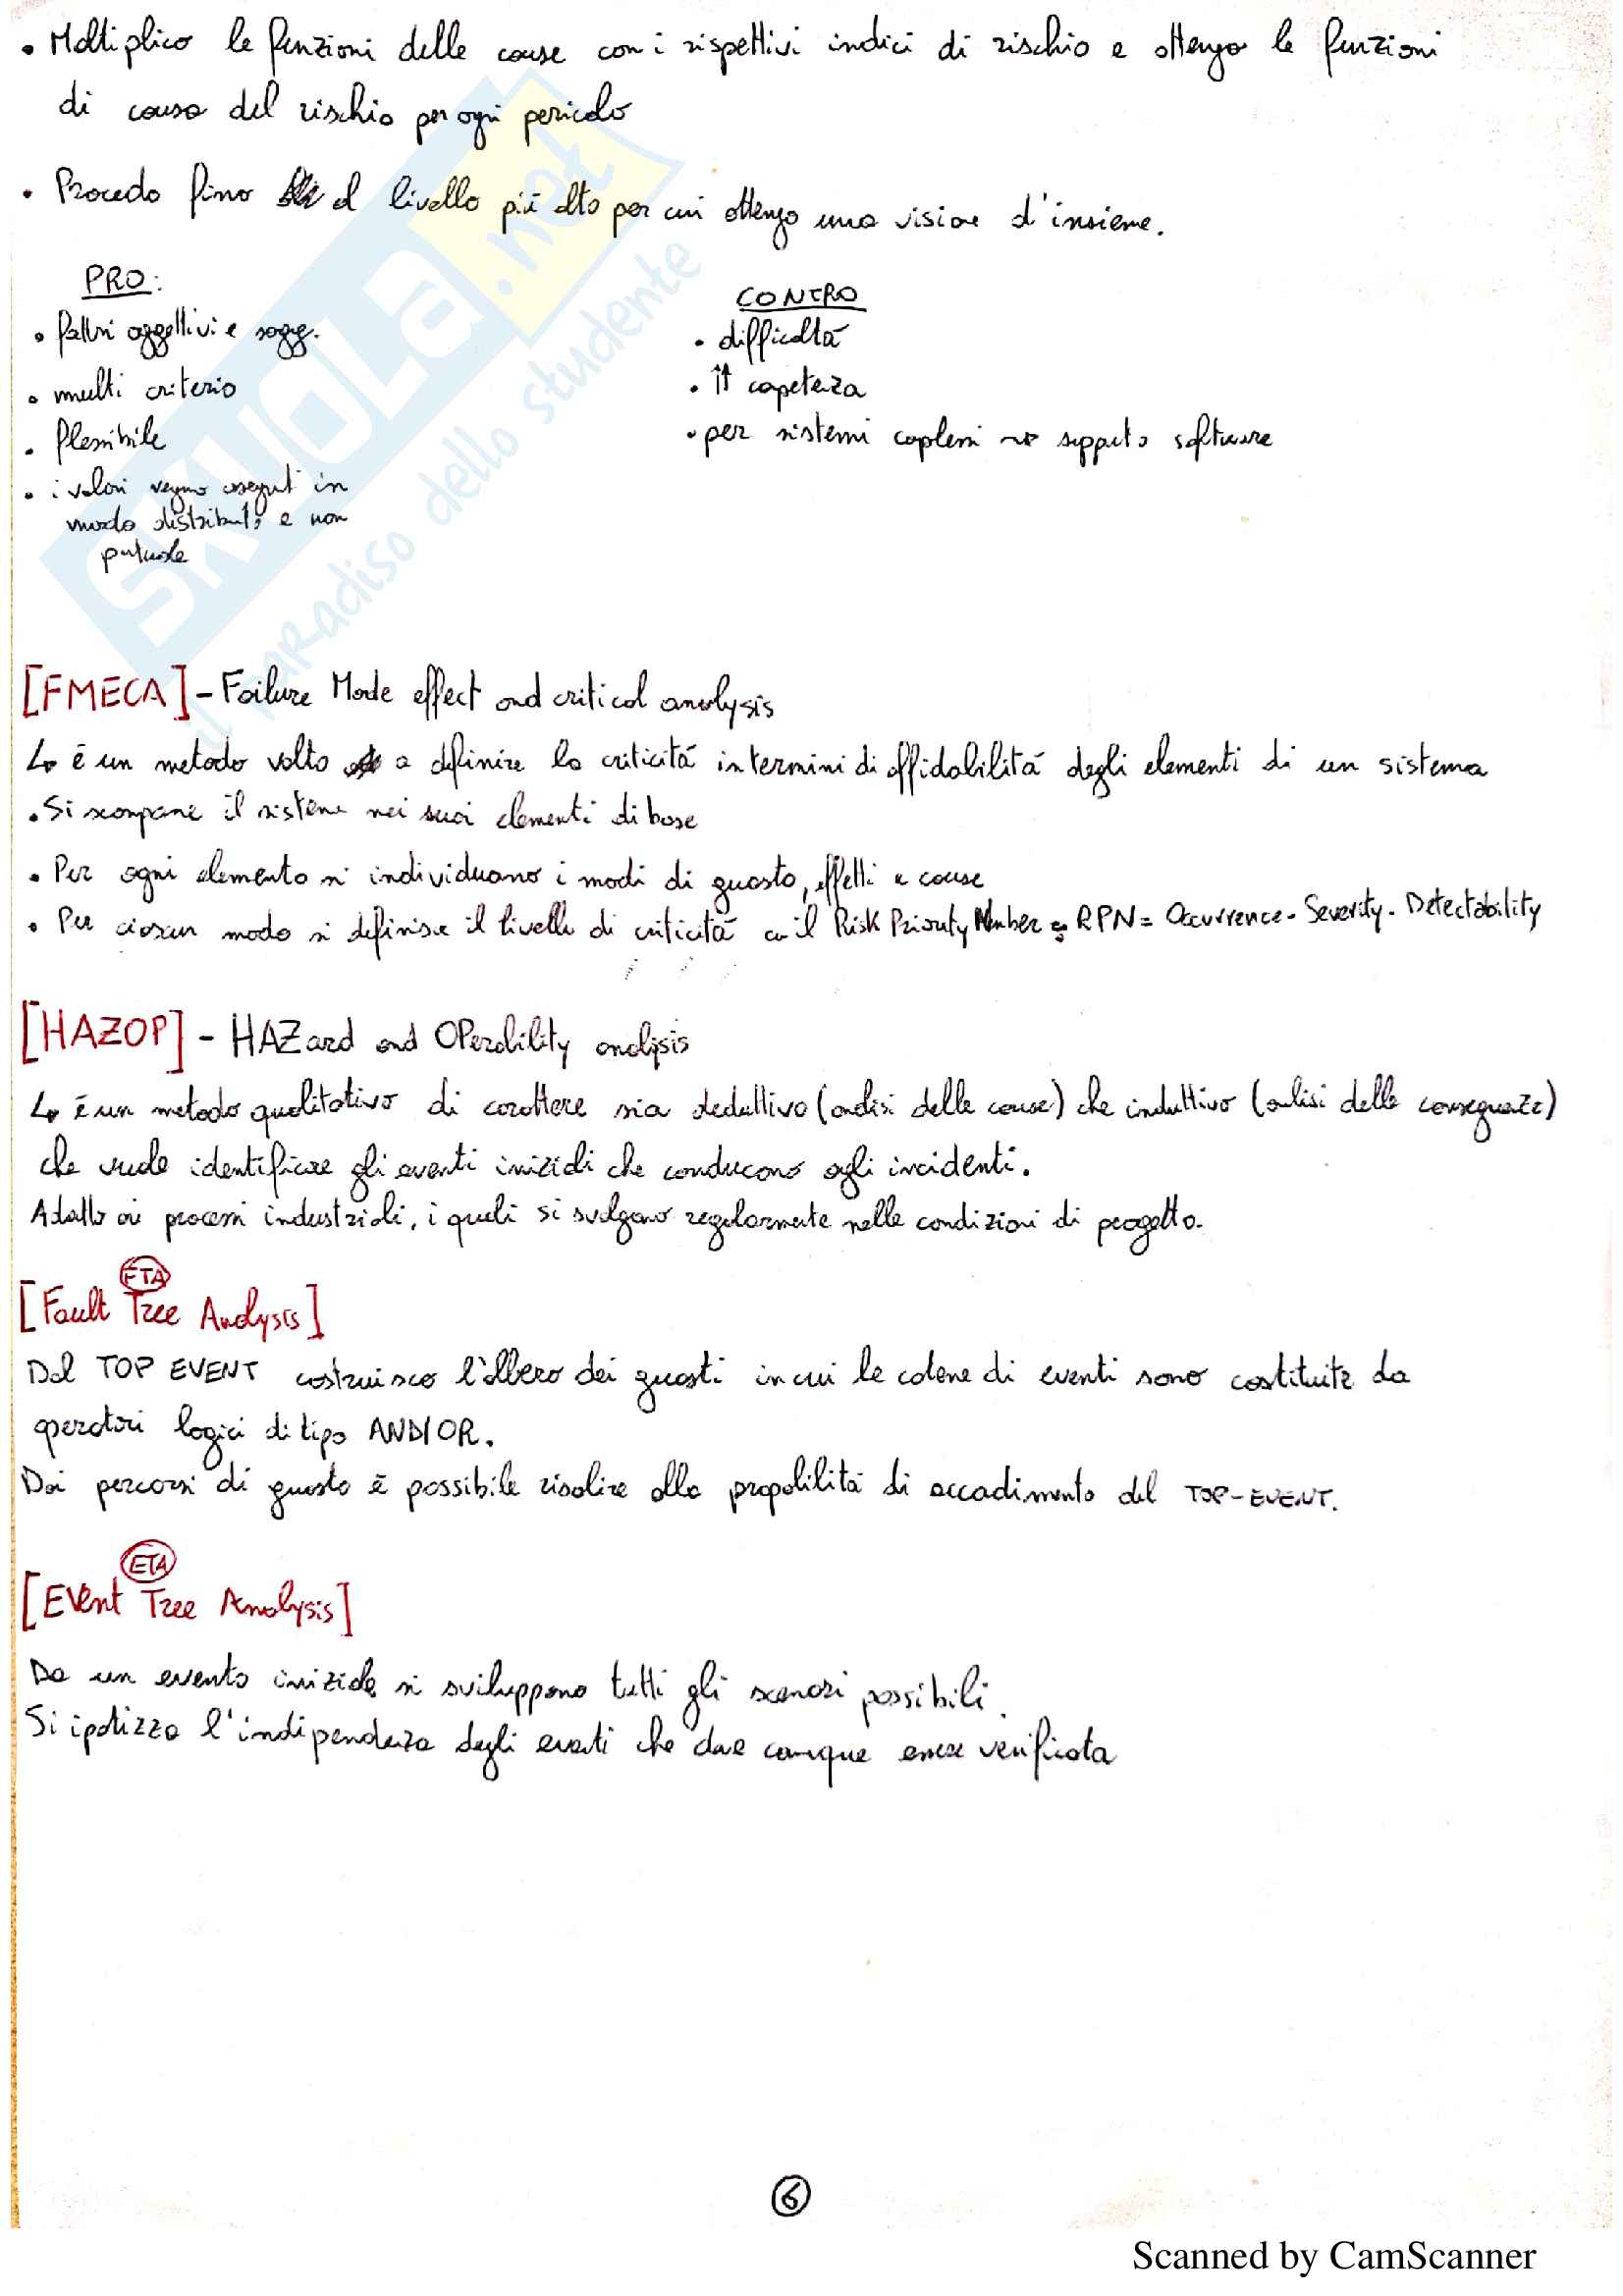 • Moltiplico le funzioni delle cause con i rispettivi indici di rischio e ottengo le funzioni
di causa del rischio per ogni pericolo
• Procedo fino al livello più alto per cui ottengo una visione d'insieme.
PRO:
• fattori oggettivi e sogg.
• multi criterio
• flessibile
• i valori vengono assegnati in
modo distribuito e non
puntuale
CONTRO
• difficoltà
• ⇈ competenza
• per sistemi complessi → supporto software
[FMECA] - Failure Mode effect and critical analysis
↳ è un metodo volto a definire la criticità in termini di affidabilità degli elementi di un sistema
• Si scompone il sistema nei suoi elementi di base
• Per ogni elemento si individuano i modi di guasto, effetti e cause
• Per ciascun modo si definisce il livello di criticità con il Risk Priority Number = RPN = Occurrence · Severity · Detectability
[HAZOP] - HAZard and OPerability analysis
↳ è un metodo qualitativo di carattere sia deduttivo (analisi delle cause) che induttivo (analisi delle conseguenze)
che vuole identificare gli eventi iniziali che conducono agli incidenti.
Adatto ai processi industriali, i quali si svolgono regolarmente nelle condizioni di progetto.
FTA
[Fault Tree Analysis]
Dal TOP EVENT costruisco l'albero dei guasti in cui le catene di eventi sono costituite da
operatori logici di tipo AND/OR.
Dai percorsi di guasto è possibile risalire alla propabilità di accadimento del TOP-EVENT.
ETA
[Event Tree Analysis]
Da un evento iniziale si sviluppano tutti gli scenari possibili.
Si ipotizza l'indipendenza degli eventi che deve comunque essere verificata
6
Scanned by CamScanner
SKUOLA.net
il paradiso dello studente